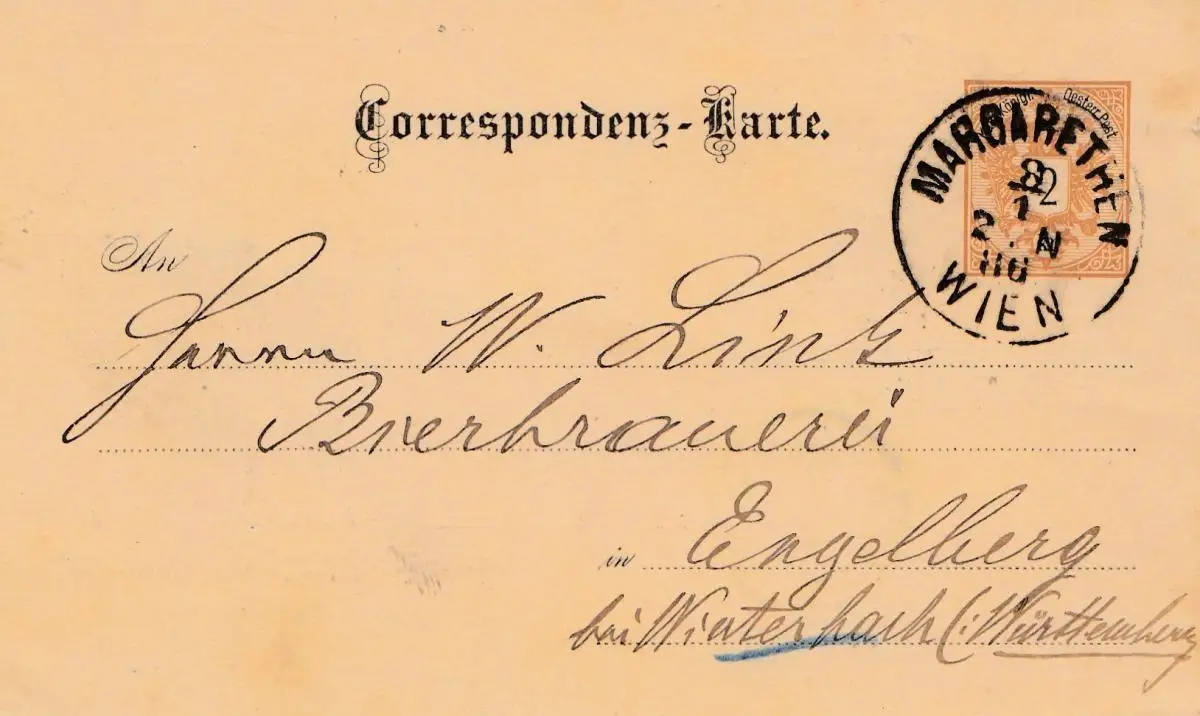 Correspondenz-Karte.
Königl. Oesterr. Post
2
MARGARETHEN
8
1
2. N
86
WIEN
An
Herrn W. Link
Bierbrauerei
in Engelberg
bei Winterbach (:Württemberg